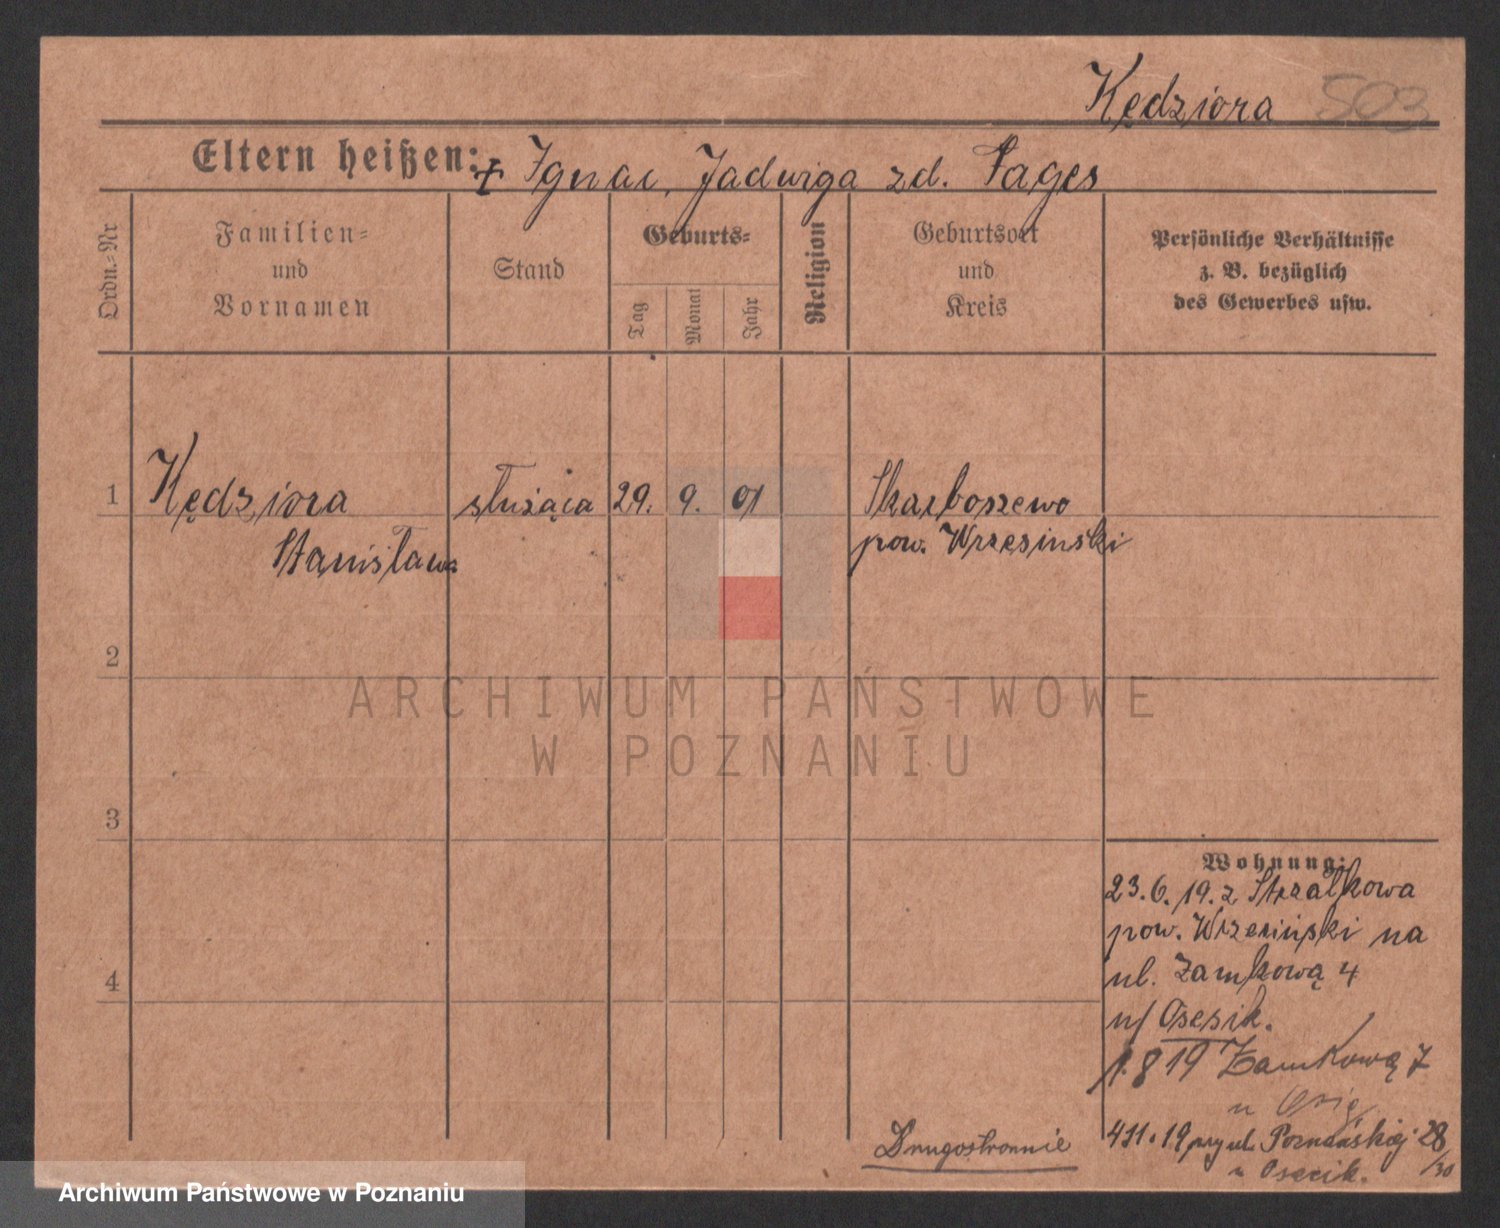 Kędziora 503
Eltern heißen: + Ignac, Jadwiga zd. Pages
Ordn.-Nr
Familien-
und
Vornamen
Stand
Geburts-
Tag
Monat
Jahr
Religion
Geburtsort
und
Kreis
Persönliche Verhältnisse
z. B. bezüglich
des Gewerbes usw.
1 Kędziora służąca 29. 9. 01 Skarboszewo
Stanisława pow. Wrzesinski
2
ARCHIWUM PAŃSTWOWE
W POZNANIU
3
4
Wohnung:
23.6.19. z Strzałkowa
pow. Wrzesiński na
ul. Zamkową 4
u/ Osesik.
1.8 19 Zamkową 7
u
4 11. 19 przy ul. Poznańskiej 28
/30
u Osecik.
Drugostronnie
Archiwum Państwowe w Poznaniu